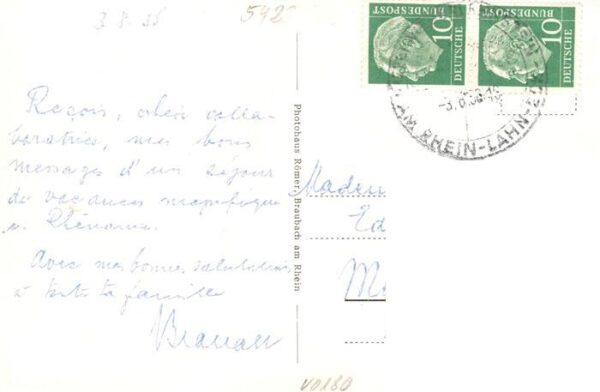 3.8.56
542
10
DEUTSCHE
BUNDESPOST
10
DEUTSCHE
BUNDESPOST
-3.8.56-
AM RHEIN-LAHN-
Reçois, chère colla-
boratrice, mes bons
messages d'un séjour
de vacances magnifique
en Rhénanie.
Avec mes bonnes salutations
à toute ta famille
Photohaus Römer, Braubach am Rhein
Madem
Ed
M
V0180